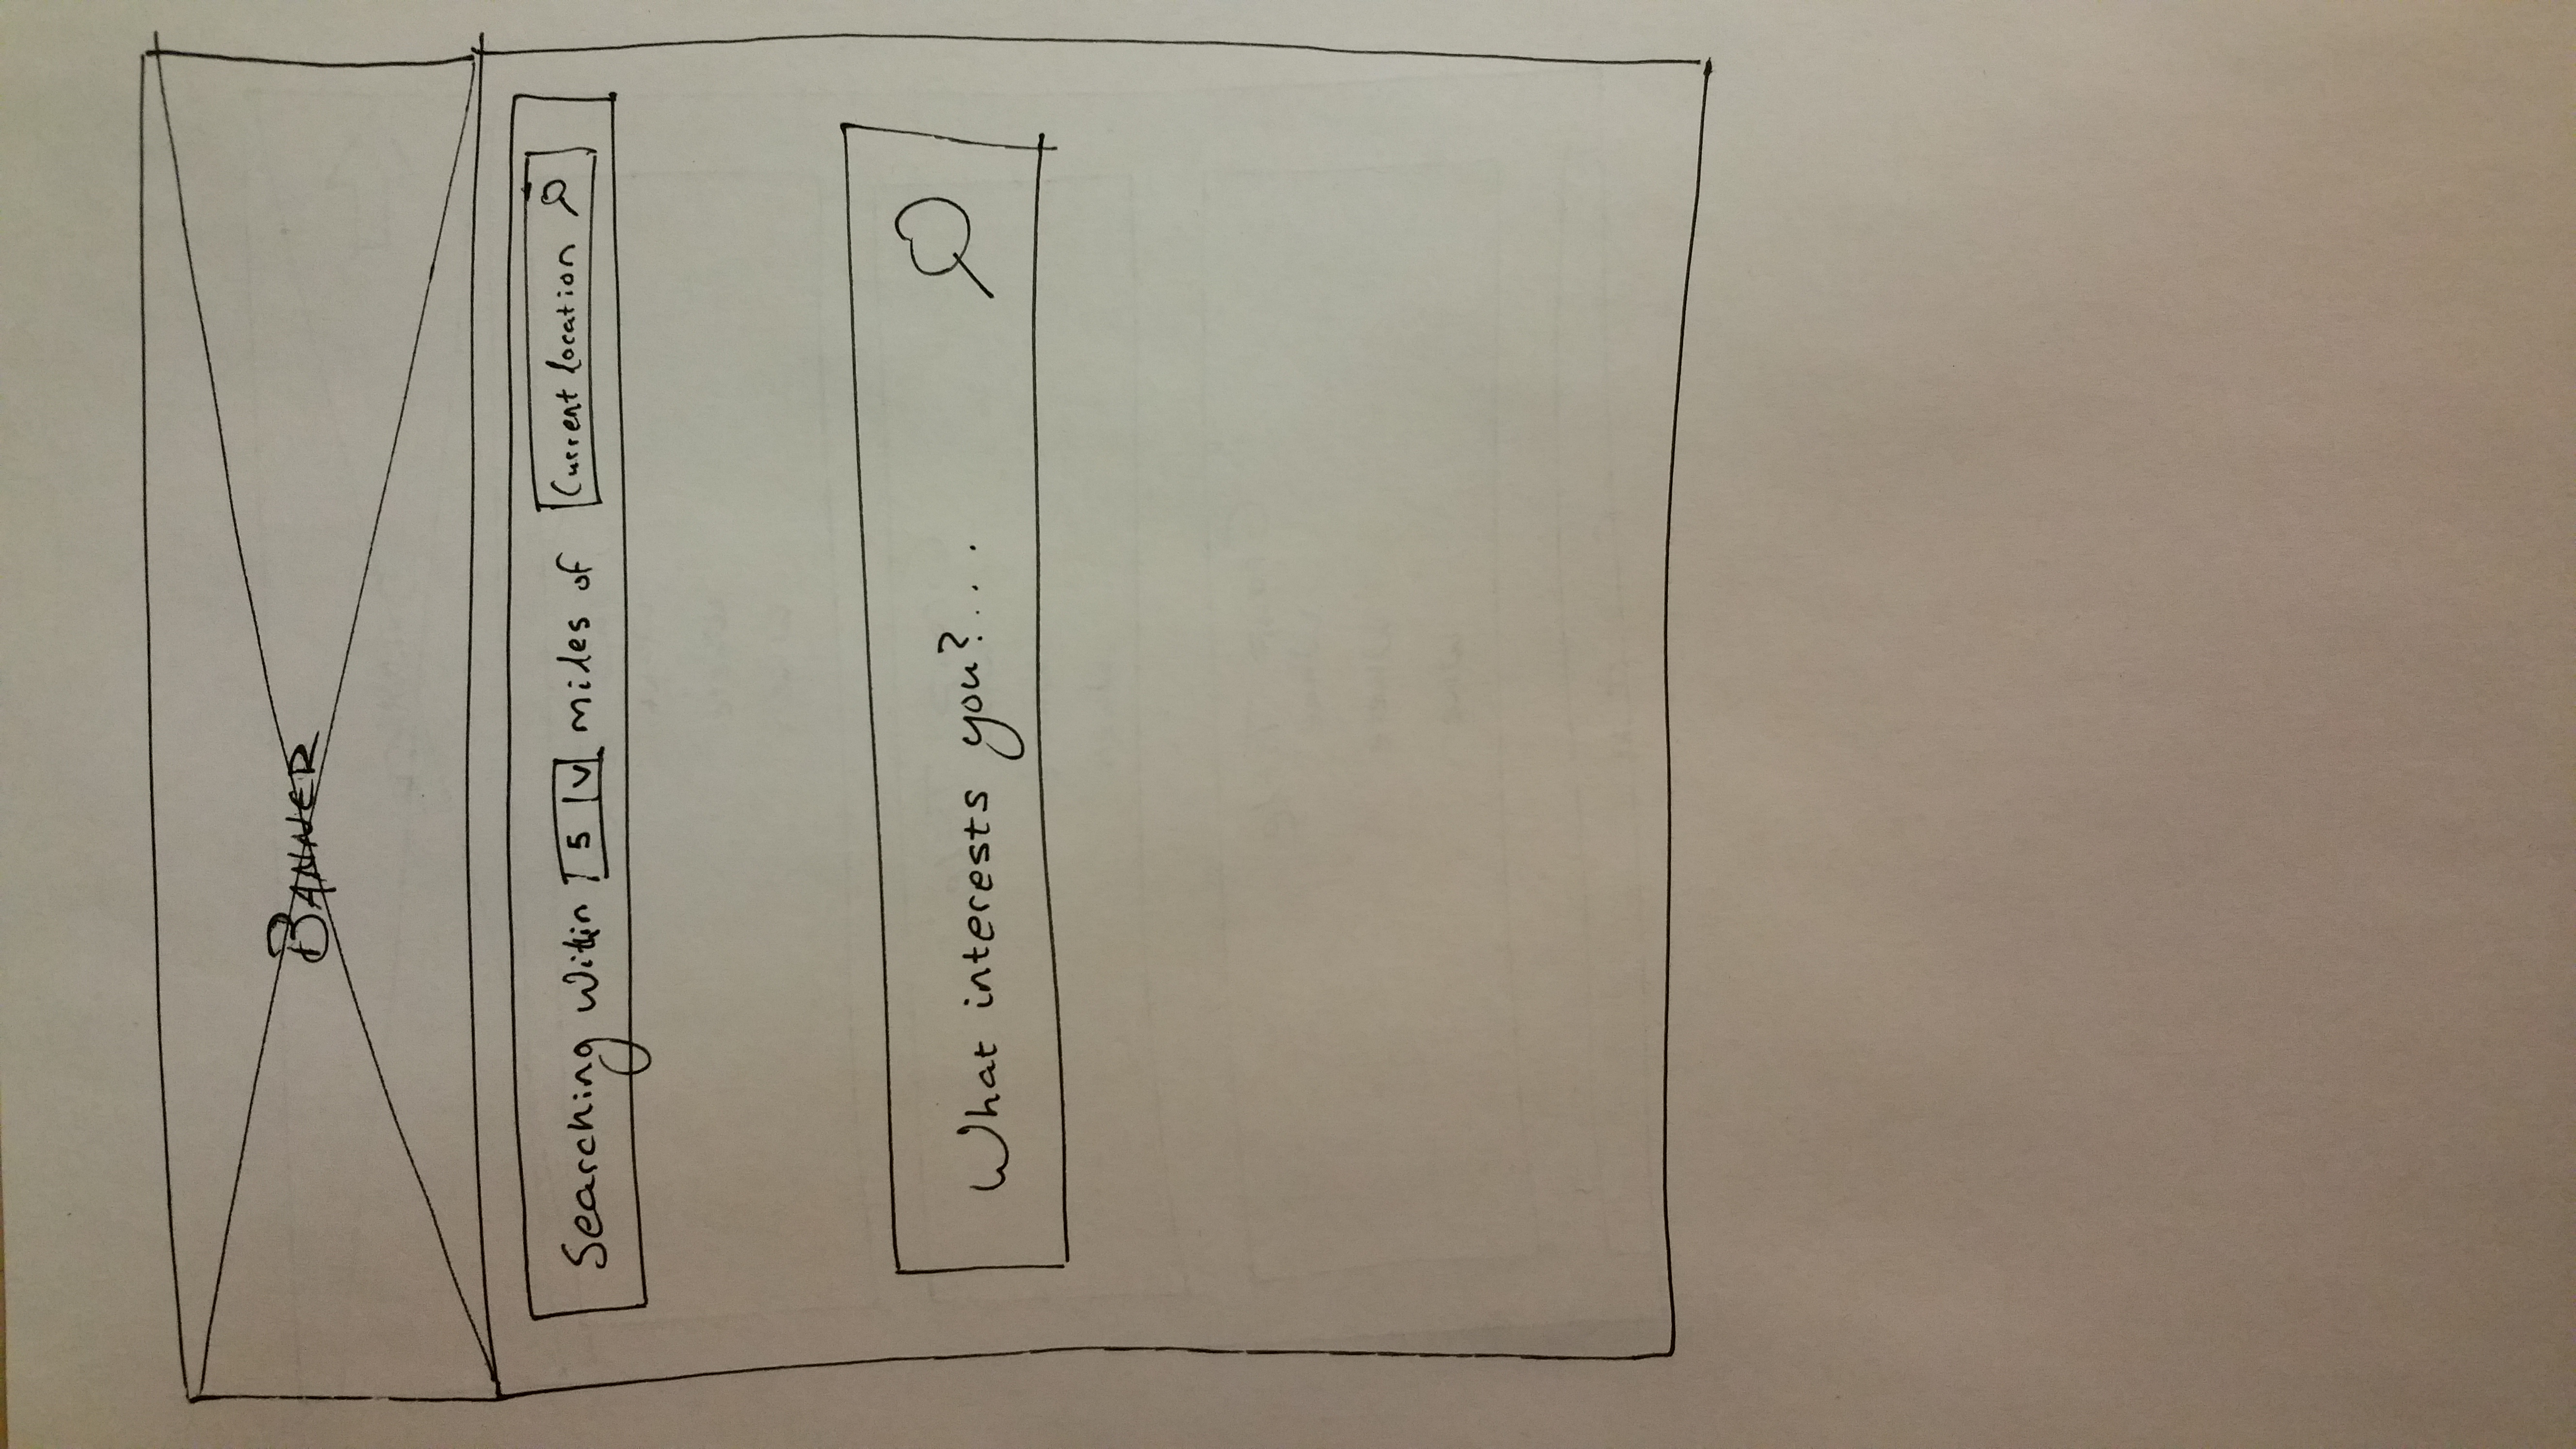 BANNER
Searching within 5 v miles of Current location
What interests you?...